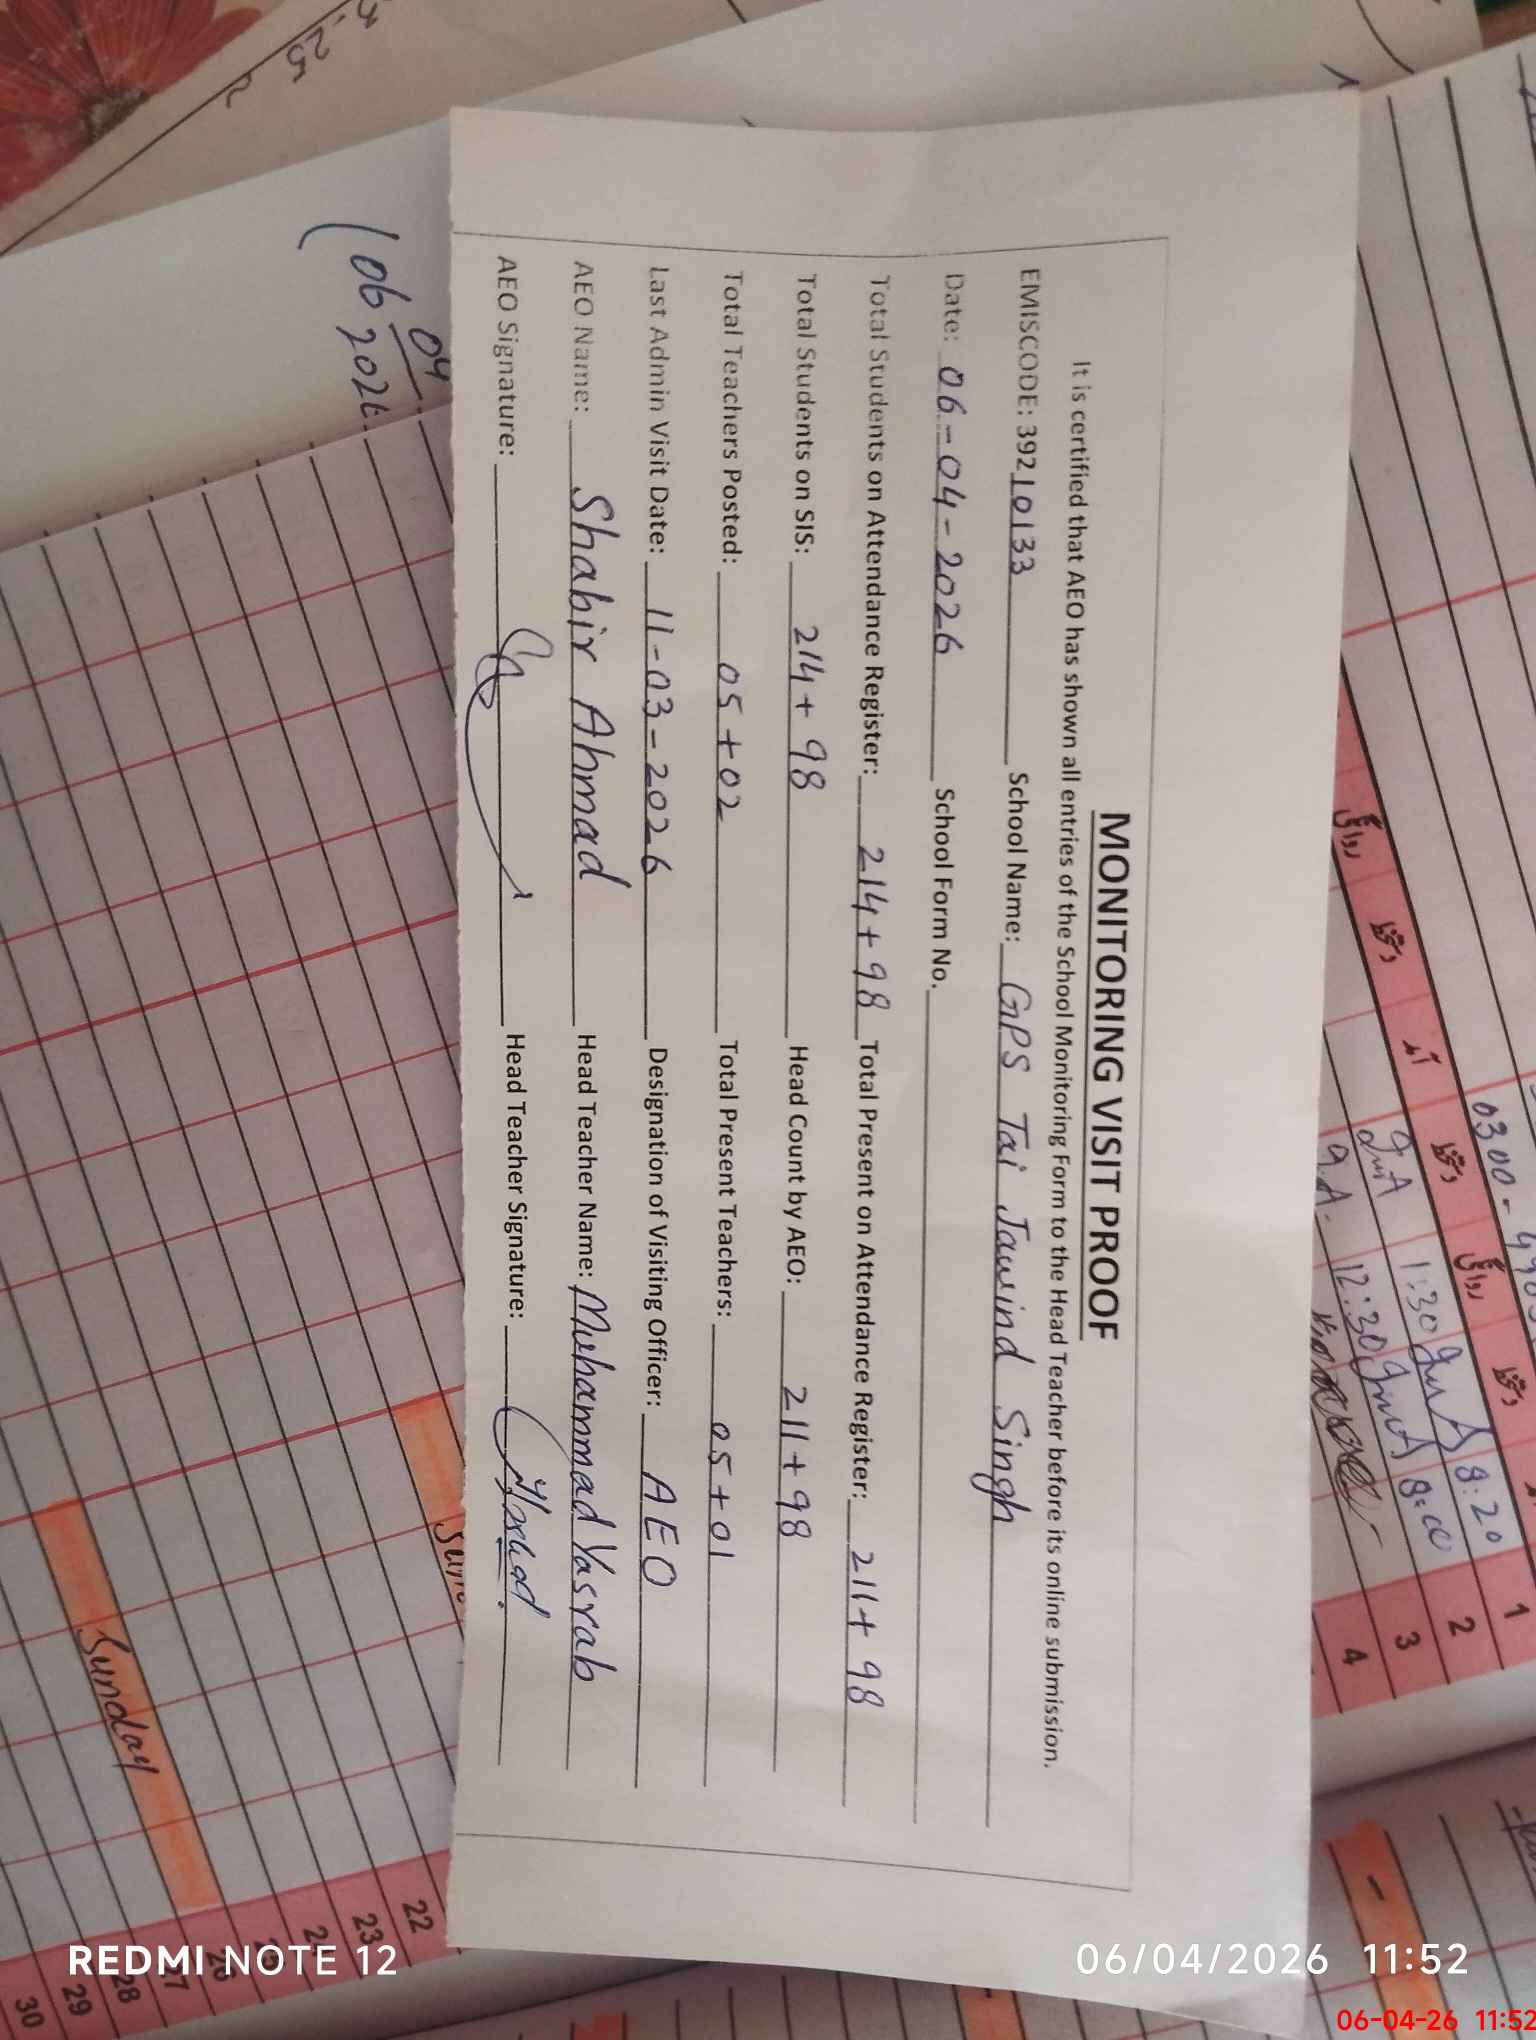 MONITORING VISIT PROOF
It is certified that AEO has shown all entries of the School Monitoring Form to the Head Teacher before its online submission.
EMISCODE: 39210133 School Name: GPS Tai Jawind Singh
Date: 06-04-2026 School Form No.
Total Students on Attendance Register: 214+98 Total Present on Attendance Register: 211+98
Total Students on SIS: 214+98 Head Count by AEO: 211+98
Total Teachers Posted: 05+02 Total Present Teachers: 05+01
Last Admin Visit Date: 11-03-2026 Designation of Visiting Officer: AEO
AEO Name: Shabir Ahmad Head Teacher Name: Muhammad Yasrab
AEO Signature: Head Teacher Signature:
0300-
روانگی دستخط آمد دستخط روانگی دستخط
1:30 8:20 1
12:30 8:00 2
3
4
Sunday
22
23
26
27
28
29
30
REDMI NOTE 12
06/04/2026 11:52
06-04-26 11:52